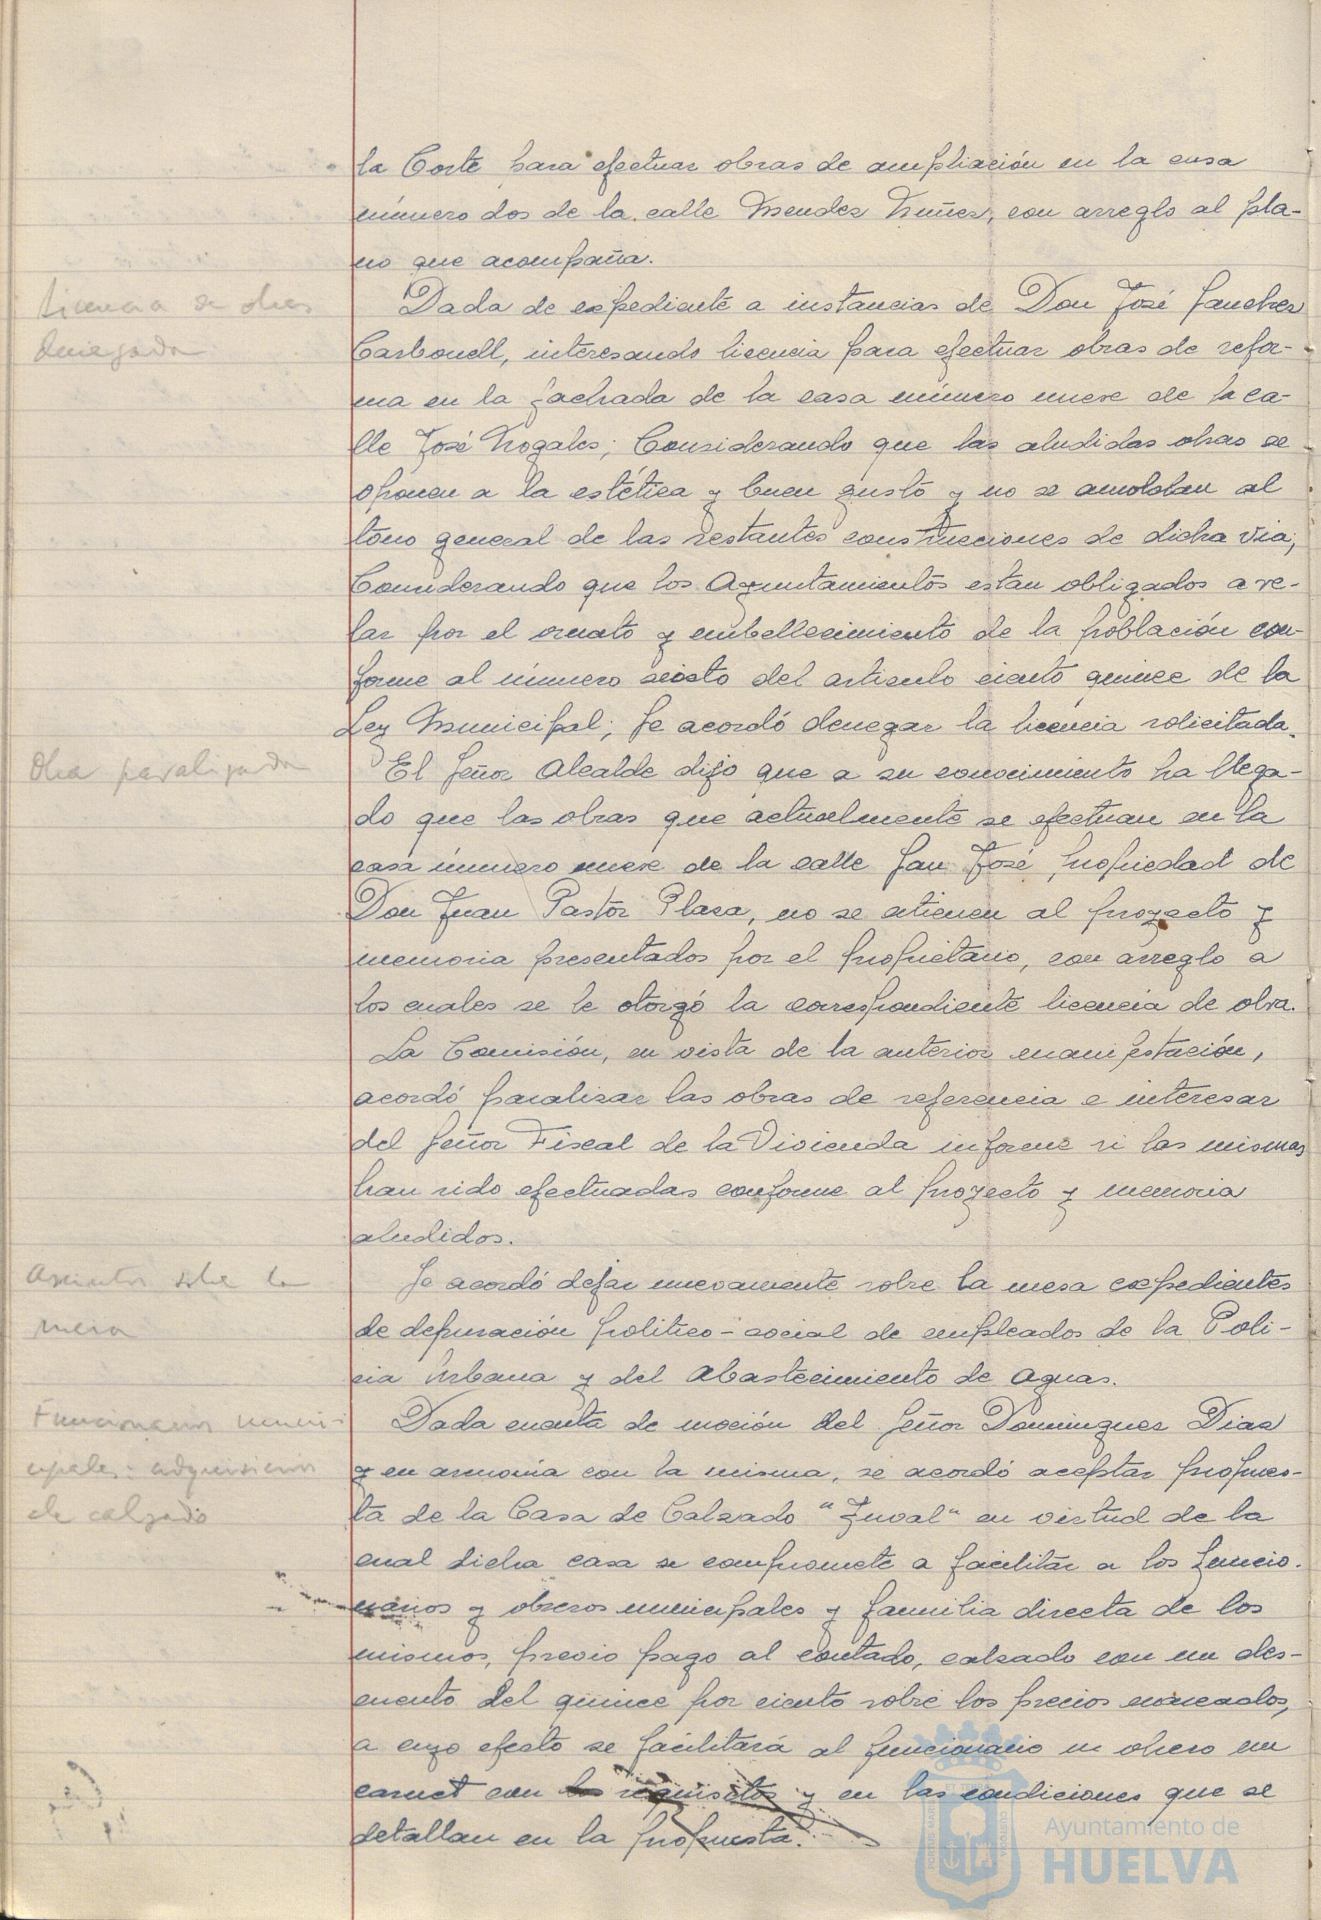 la Corte para efectuar obras de ampliación en la casa
número dos de la calle Mendez Nuñez, con arreglo al pla-
no que acompaña.
Licencia de obras
denegada
Dada de expediente a instancias de Don José Sanchez
Carbonell, interesando licencia para efectuar obras de refor-
ma en la fachada de la casa número nueve de la ca-
lle José Nogales; Considerando que las aludidas obras se
oponen a la estética y buen gusto y no se amoldan al
tono general de las restantes construcciones de dicha via;
Considerando que los Ayuntamientos estan obligados a ve-
lar por el ornato y embellecimiento de la población con-
forme al número sexto del articulo ciento quince de la
Ley Municipal; Se acordó denegar la licencia solicitada.
Obra paralizada
El Señor Alcalde dijo que a su conocimiento ha llega-
do que las obras que actualmente se efectuan en la
casa número nueve de la calle San José, propiedad de
Don Juan Pastor Plaza, no se atienen al proyecto y
memoria presentados por el propietario, con arreglo a
los cuales se le otorgó la correspondiente licencia de obra.
La Comisión, en vista de la anterior manifestación,
acordó paralizar las obras de referencia e interesar
del Señor Fiscal de la Vivienda informe si las mismas
han sido efectuadas conforme al proyecto y memoria
aludidos.
Asuntos sobre la
mesa
Se acordó dejar nuevamente sobre la mesa expedientes
de depuración politico-social de empleados de la Poli-
cia Urbana y del Abastecimiento de Aguas.
Funcionarios munici-
cipales: adquisicion
de calzado
Dada cuenta de moción del Señor Dominguez Diaz
y en armonia con la misma, se acordó aceptar propues-
ta de la Casa de Calzado "Juval" en virtud de la
cual dicha casa se compromete a facilitar a los funcio-
narios y obreros municipales y familia directa de los
mismos, previo pago al contado, calzado con un des-
cuento del quince por ciento sobre los precios marcados,
a cuyo efecto se facilitará al funcionario u obrero un
carnet con los requisitos y en las condiciones que se
detallan en la propuesta.
Ayuntamiento de
HUELVA